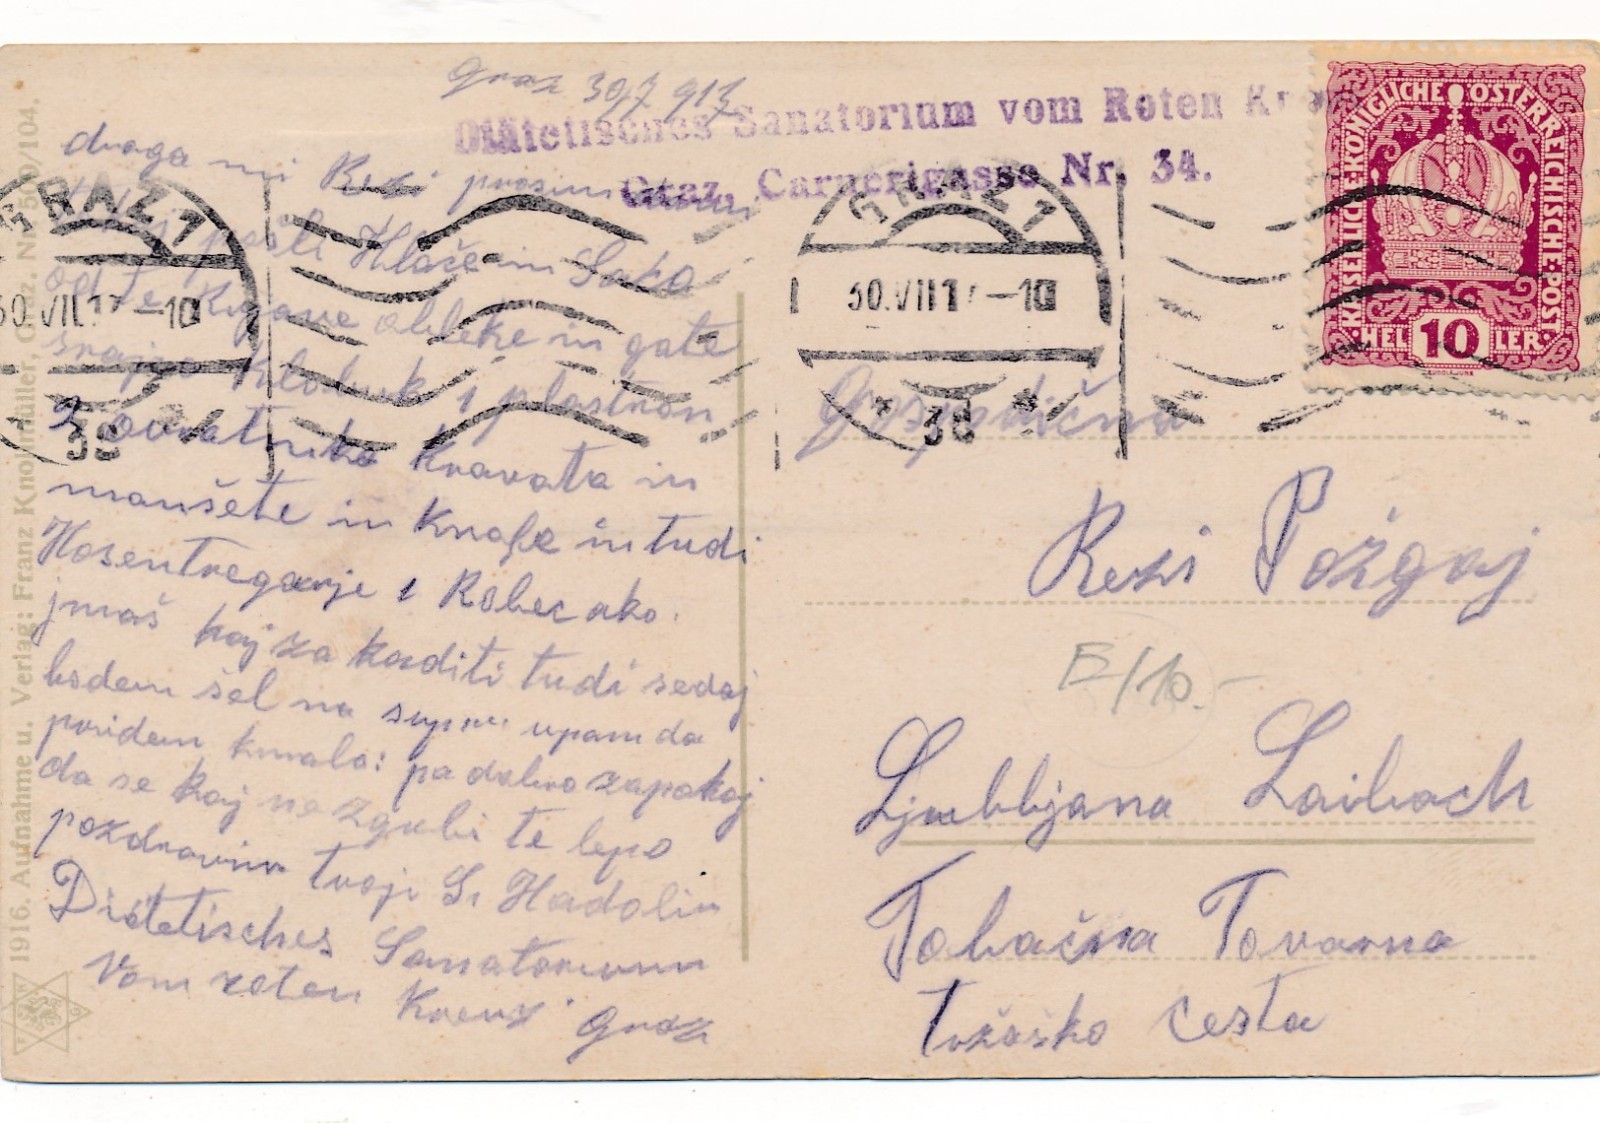 Graz 30/7 917
draga mi Rezi prosim
pošli Hlače in Sako
od te Rigave obleke in gate
srajco Klobuk 1 plastron
2 ovratnika Kravata in
manšete in Knofe in tudi
Hosentregarje 1 Robec ako
jmaš kaj za kaditi tudi sedaj
bodem šel na upam da
pridem kmalo: pa dobro zapakaj
da se kaj ne zgubi te lepo
pozdravim tvoji S. Hadolin
Diätetisches Sanatorium
Vom roten Kreuz Graz
Diätetisches Sanatorium vom Roten
Graz, Carnerigasse Nr. 34.
GRAZ 1
30.VII 17 –10
38
GRAZ 1
30.VII 17 –10
38
KAISERLICHE KÖNIGLICHE ÖSTERREICHISCHE POST
HELLER 10
Gospodična
Rezi Požgaj
E/10.–
Ljubbljana Laibach
Tobačna Tovarna
Tržaška cesta
1916. Aufnahme u. Verlag: Franz Knollmüller, Graz. Nr. 59/104.